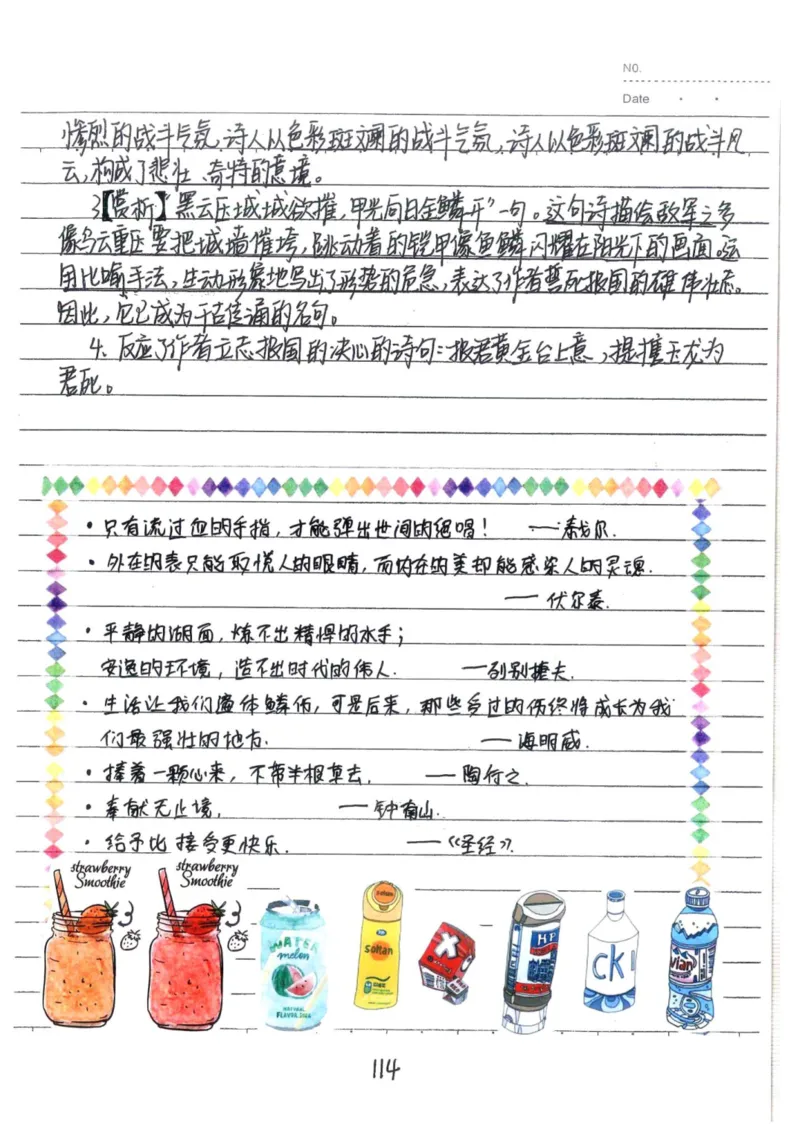 NO.
Date
惨烈的战斗气氛,诗人以色彩斑斓的战斗气氛,诗人以色彩斑斓的战斗风
云,构成了悲壮、奇特的意境。
3【赏析】"黑云压城城欲摧,甲光向日金鳞开"一句。这句诗描绘敌军之多
像乌云重压要把城墙催垮,跳动着的铠甲像鱼鳞闪耀在阳光下的画面。运
用比喻手法,生动形象地写出了形势的危急,表达了作者誓死报国的雄伟壮志。
因此,它已成为千古传诵的名句。
4.反应了作者立志报国的决心的诗句:报君黄金台上意,提携玉龙为
君死。
·只有流过血的手指,才能弹出世间的绝唱! ——泰戈尔.
·外在的表只能取悦人的眼睛,而内在的美却能感染人的灵魂.
——伏尔泰.
·平静的湖面,炼不出精悍的水手;
安逸的环境,造不出时代的伟人. ——列别捷夫.
·生活让我们遍体鳞伤,可是后来,那些受过的伤终将成长为我
们最强壮的地方. ——海明威.
·捧着一颗心来,不带半根草去. ——陶行之.
·奉献无止境. ——钟南山.
·给予比接受更快乐. ——《圣经》.
strawberry
Smoothie
strawberry
Smoothie
WATER
melon
NATURAL
FLAVOR SODA
Soltan
HP
CKI
vian
114